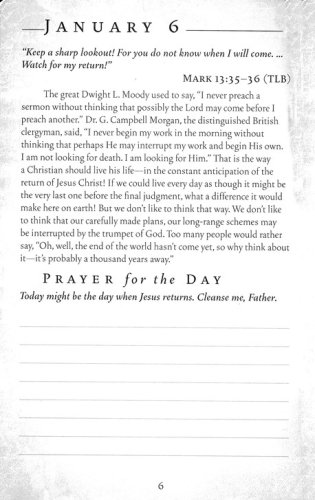 JANUARY 6
"Keep a sharp lookout! For you do not know when I will come. ...
Watch for my return!"
MARK 13:35–36 (TLB)
The great Dwight L. Moody used to say, "I never preach a
sermon without thinking that possibly the Lord may come before I
preach another." Dr. G. Campbell Morgan, the distinguished British
clergyman, said, "I never begin my work in the morning without
thinking that perhaps He may interrupt my work and begin His own.
I am not looking for death. I am looking for Him." That is the way
a Christian should live his life—in the constant anticipation of the
return of Jesus Christ! If we could live every day as though it might be
the very last one before the final judgment, what a difference it would
make here on earth! But we don't like to think that way. We don't like
to think that our carefully made plans, our long-range schemes may
be interrupted by the trumpet of God. Too many people would rather
say, "Oh, well, the end of the world hasn't come yet, so why think about
it—it's probably a thousand years away."
PRAYER for the DAY
Today might be the day when Jesus returns. Cleanse me, Father.
6